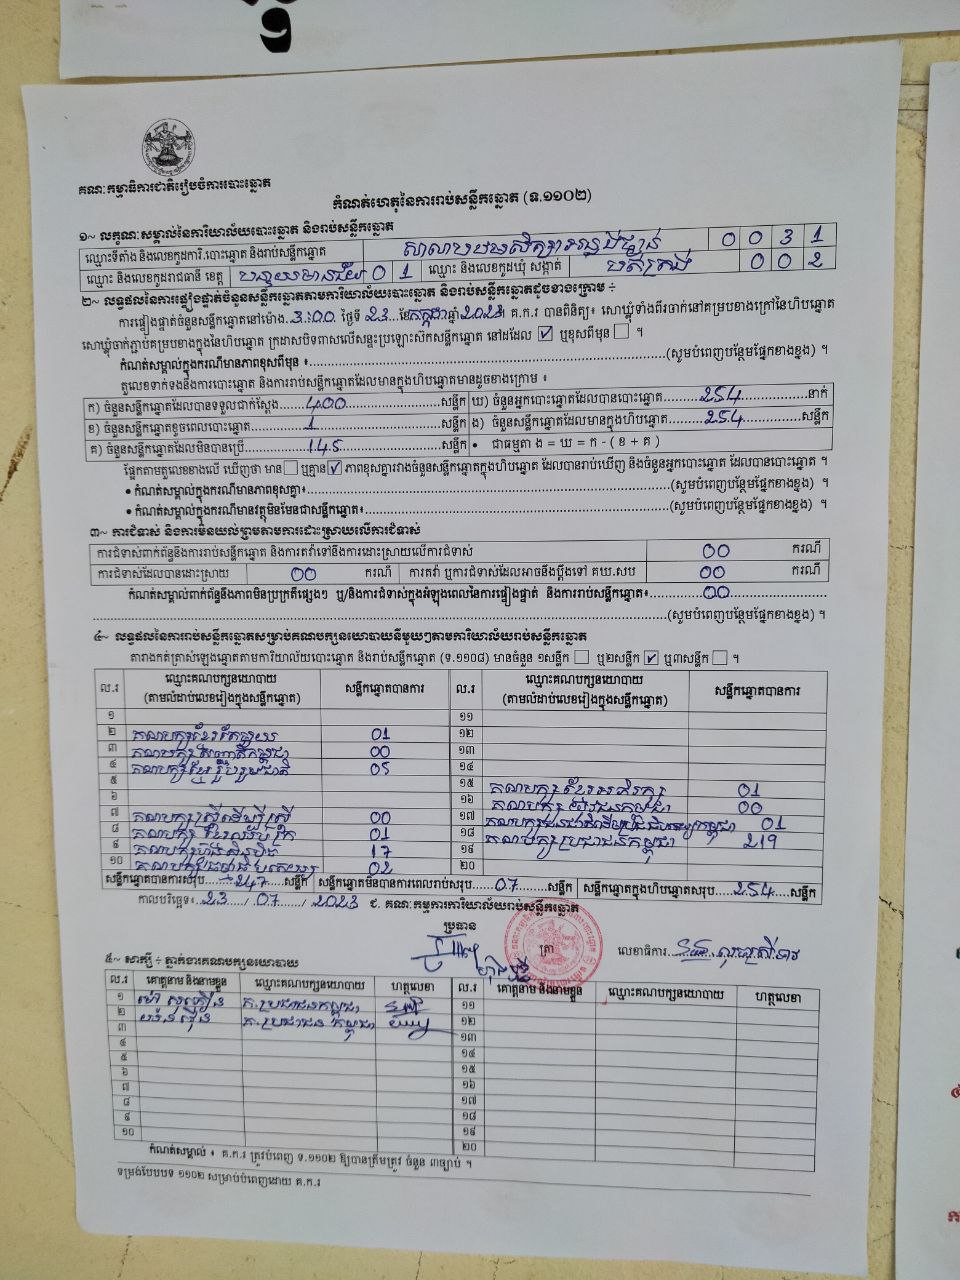 គណៈកម្មាធិការជាតិរៀបចំការបោះឆ្នោត
កំណត់ហេតុនៃការរាប់សន្លឹកឆ្នោត (ទ.១១០២)
១~ លក្ខណៈសម្គាល់នៃការិយាល័យបោះឆ្នោត និងរាប់សន្លឹកឆ្នោត
ឈ្មោះទីតាំង និងលេខកូដការិ.បោះឆ្នោត និងរាប់សន្លឹកឆ្នោត 0 0 3 1
ឈ្មោះ និងលេខកូដរាជធានី ខេត្ត បន្ទាយមានជ័យ 0 1 ឈ្មោះ និងលេខកូដឃុំ សង្កាត់ បត់ត្រង់ 0 0 2
២~ លទ្ធផលនៃការផ្ទៀងផ្ទាត់ចំនួនសន្លឹកឆ្នោតតាមការិយាល័យបោះឆ្នោត និងរាប់សន្លឹកឆ្នោតដូចខាងក្រោម ÷
ការផ្ទៀងផ្ទាត់ចំនួនសន្លឹកឆ្នោតនៅម៉ោង 3:00 ថ្ងៃទី 23 ខែ កក្កដា ឆ្នាំ 2023 គ.ក.រ បានពិនិត្យ៖ សោឃ្លុំទាំងពីរចាក់នៅគម្របខាងក្រៅនៃហិបឆ្នោត
សោឃ្លុំចាក់ភ្ជាប់គម្របខាងក្នុងនៃហិបឆ្នោត ក្រដាសបិទពាសលើសន្ទះប្រឡោះស៊កសន្លឹកឆ្នោត នៅដដែល ☑ ឬខុសពីមុន ☐ ។
កំណត់សម្គាល់ក្នុងករណីមានភាពខុសពីមុន ៖ (សូមបំពេញបន្ថែមផ្នែកខាងខ្នង) ។
តួលេខទាក់ទងនឹងការបោះឆ្នោត និងការរាប់សន្លឹកឆ្នោតដែលមានក្នុងហិបឆ្នោតមានដូចខាងក្រោម ៖
ក) ចំនួនសន្លឹកឆ្នោតដែលបានទទួលជាក់ស្តែង 400 សន្លឹក ឃ) ចំនួនអ្នកបោះឆ្នោតដែលបានបោះឆ្នោត 254 នាក់
ខ) ចំនួនសន្លឹកឆ្នោតខូចពេលបោះឆ្នោត 1 សន្លឹក ង) ចំនួនសន្លឹកឆ្នោតដែលមានក្នុងហិបឆ្នោត 254 សន្លឹក
គ) ចំនួនសន្លឹកឆ្នោតដែលមិនបានប្រើ 145 សន្លឹក • ជាធម្មតា ង = ឃ = ក - ( ខ + គ )
ផ្អែកតាមតួលេខខាងលើ ឃើញថា មាន ☐ ឬគ្មាន ☑ ភាពខុសគ្នារវាងចំនួនសន្លឹកឆ្នោតក្នុងហិបឆ្នោត ដែលបានរាប់ឃើញ និងចំនួនអ្នកបោះឆ្នោត ដែលបានបោះឆ្នោត ។
• កំណត់សម្គាល់ក្នុងករណីមានភាពខុសគ្នា៖ (សូមបំពេញបន្ថែមផ្នែកខាងខ្នង) ។
• កំណត់សម្គាល់ក្នុងករណីមានវត្ថុមិនមែនជាសន្លឹកឆ្នោត៖ (សូមបំពេញបន្ថែមផ្នែកខាងខ្នង) ។
៣~ ការជំទាស់ និងការមិនយល់ព្រមតាមការដោះស្រាយលើការជំទាស់
ការជំទាស់ពាក់ព័ន្ធនឹងការរាប់សន្លឹកឆ្នោត និងការតវ៉ាទៅនឹងការដោះស្រាយលើការជំទាស់ 00 ករណី
ការជំទាស់ដែលបានដោះស្រាយ 00 ករណី ការតវ៉ា ឬការជំទាស់ដែលអាចនឹងប្តឹងទៅ គឃ.សប 00 ករណី
កំណត់សម្គាល់ពាក់ព័ន្ធនឹងភាពមិនប្រក្រតីផ្សេងៗ ឬ/និងការជំទាស់ក្នុងអំឡុងពេលនៃការផ្ទៀងផ្ទាត់ និងការរាប់សន្លឹកឆ្នោត៖ 00
(សូមបំពេញបន្ថែមផ្នែកខាងខ្នង) ។
៤~ លទ្ធផលនៃការរាប់សន្លឹកឆ្នោតសម្រាប់គណបក្សនយោបាយនីមួយៗតាមការិយាល័យរាប់សន្លឹកឆ្នោត
តារាងកត់ត្រាសំឡេងឆ្នោតតាមការិយាល័យបោះឆ្នោត និងរាប់សន្លឹកឆ្នោត (ទ.១១០៨) មានចំនួន ១សន្លឹក ☐ ឬ២សន្លឹក ☑ ឬ៣សន្លឹក ☐ ។
ល.រ ឈ្មោះគណបក្សនយោបាយ (តាមលំដាប់លេខរៀងក្នុងសន្លឹកឆ្នោត) សន្លឹកឆ្នោតបានការ ល.រ ឈ្មោះគណបក្សនយោបាយ (តាមលំដាប់លេខរៀងក្នុងសន្លឹកឆ្នោត) សន្លឹកឆ្នោតបានការ
១ ១១
២ គណបក្សខ្មែរតែមួយ 01 ១២
៣ 00 ១៣
៤ គណបក្សខ្មែររួបរួមជាតិ 05 ១៤
៥ ១៥ គណបក្សខ្មែរអភិរក្ស 01
៦ ១៦ 00
៧ គណបក្សស្រ្តីដើម្បីស្រ្តី 00 ១៧ 01
៨ 01 ១៨ គណបក្សប្រជាជនកម្ពុជា 219
៩ គណបក្សហ្វ៊ុនស៊ិនប៉ិច 17 ១៩
១០ 02 ២០
សន្លឹកឆ្នោតបានការសរុប 247 សន្លឹក សន្លឹកឆ្នោតមិនបានការពេលរាប់សរុប 07 សន្លឹក សន្លឹកឆ្នោតក្នុងហិបឆ្នោតសរុប 254 សន្លឹក
កាលបរិច្ឆេទ៖ 23 / 07 / 2023 ជ. គណៈកម្មការការិយាល័យរាប់សន្លឹកឆ្នោត
ប្រធាន
ត្រា លេខាធិការ
៥~ សាក្សី ÷ ភ្នាក់ងារគណបក្សនយោបាយ
ល.រ គោត្តនាម និងនាមខ្លួន ឈ្មោះគណបក្សនយោបាយ ហត្ថលេខា ល.រ គោត្តនាម និងនាមខ្លួន ឈ្មោះគណបក្សនយោបាយ ហត្ថលេខា
១ គ.ប្រជាជនកម្ពុជា ១១
២ គ.ប្រជាជន កម្ពុជា ១២
៣ ១៣
៤ ១៤
៥ ១៥
៦ ១៦
៧ ១៧
៨ ១៨
៩ ១៩
១០ ២០
កំណត់សម្គាល់ ៖ គ.ក.រ ត្រូវបំពេញ ទ.១១០២ ឱ្យបានត្រឹមត្រូវ ចំនួន ៣ច្បាប់ ។
ទម្រង់បែបបទ ១១០២ សម្រាប់បំពេញដោយ គ.ក.រ